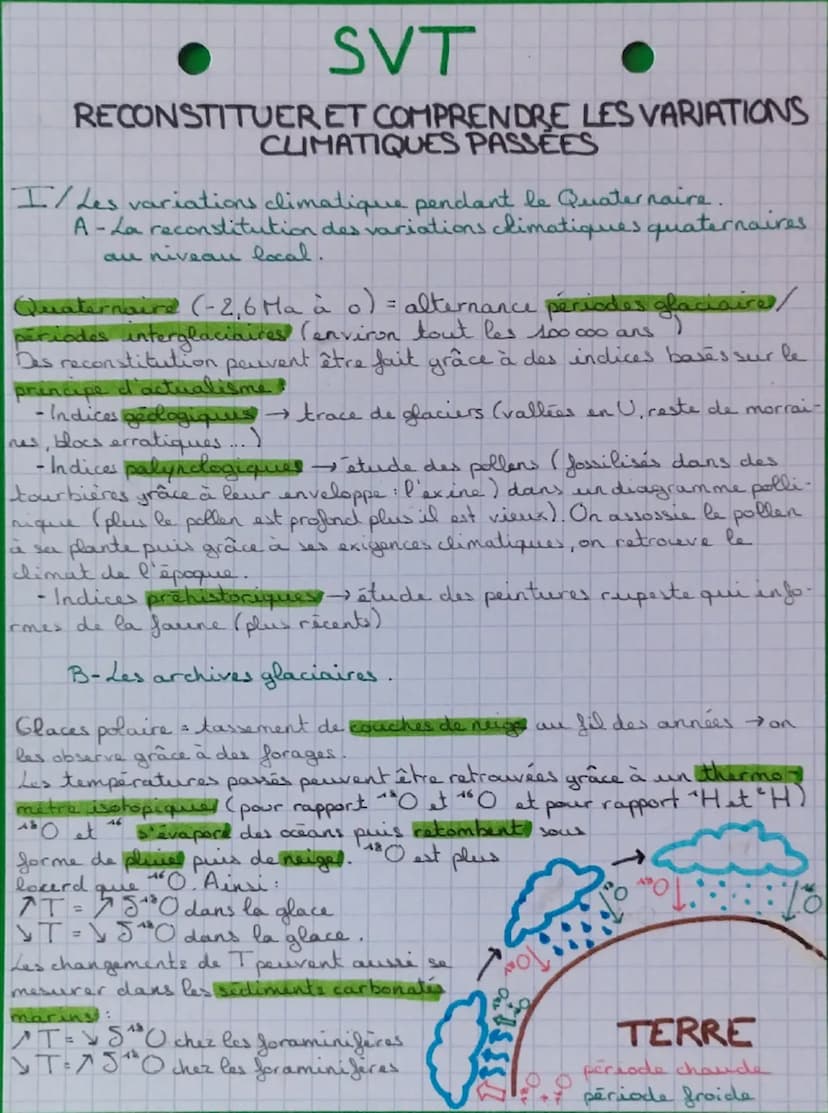 SVT
RECONSTITUER ET COMPRENDRE LES VARIATIONS
CLIMATIQUES PASSÉES
I/ Les variations climatique pendant le Quaternaire.
A - La reconstitution des variations climatiques quaternaires
au niveau local.
Quaternaire (-2,6 Ma à 0) = alternance périodes glaciaire/
périodes interglaciaires (environ tout les 100 000 ans)
Des reconstitution peuvent être fait grâce à des indices basés sur le
principe d'actualisme :
- Indices géologiques → trace de glaciers (vallées en U, reste de morrai-
nes, blocs erratiques ...)
- Indices palynologiques → étude des pollens (fossilisés dans des
tourbières grâce à leur enveloppe : l'exine) dans un diagramme polli-
nique (plus le pollen est profond plus il est vieux). On assossie le pollen
à sa plante puis grâce à ses exigences climatiques, on retrouve le
climat de l'époque.
- Indices préhistoriques → étude des peintures rupeste qui info-
rmes de la faune (plus récents)
B - Les archives glaciaires.
Glaces polaire = tassement de couches de neige au fil des années → on
les observe grâce à des forages.
Les températures passés peuvent être retrouvées grâce à un thermo-
mètre isotopique (pour rapport ¹⁸O et ¹⁶O et pour rapport ¹H et ²H)
¹⁸O et ¹⁶ s'évapore des océans puis retombent sous
forme de pluie puis de neige. ¹⁸O est plus
lourd que ¹⁶O. Ainsi :
↗T = ↗ δ¹⁸O dans la glace
↘T = ↘ δ¹⁸O dans la glace.
Les changements de T peuvent aussi se
mesurer dans les sédiments carbonatés
marins :
↗T = ↘ δ¹⁸O chez les foraminifères
↘T = ↗ δ¹⁸O chez les foraminifères
¹⁸O
¹⁸O
¹⁸O
¹⁸O
TERRE
période chaude
période froide